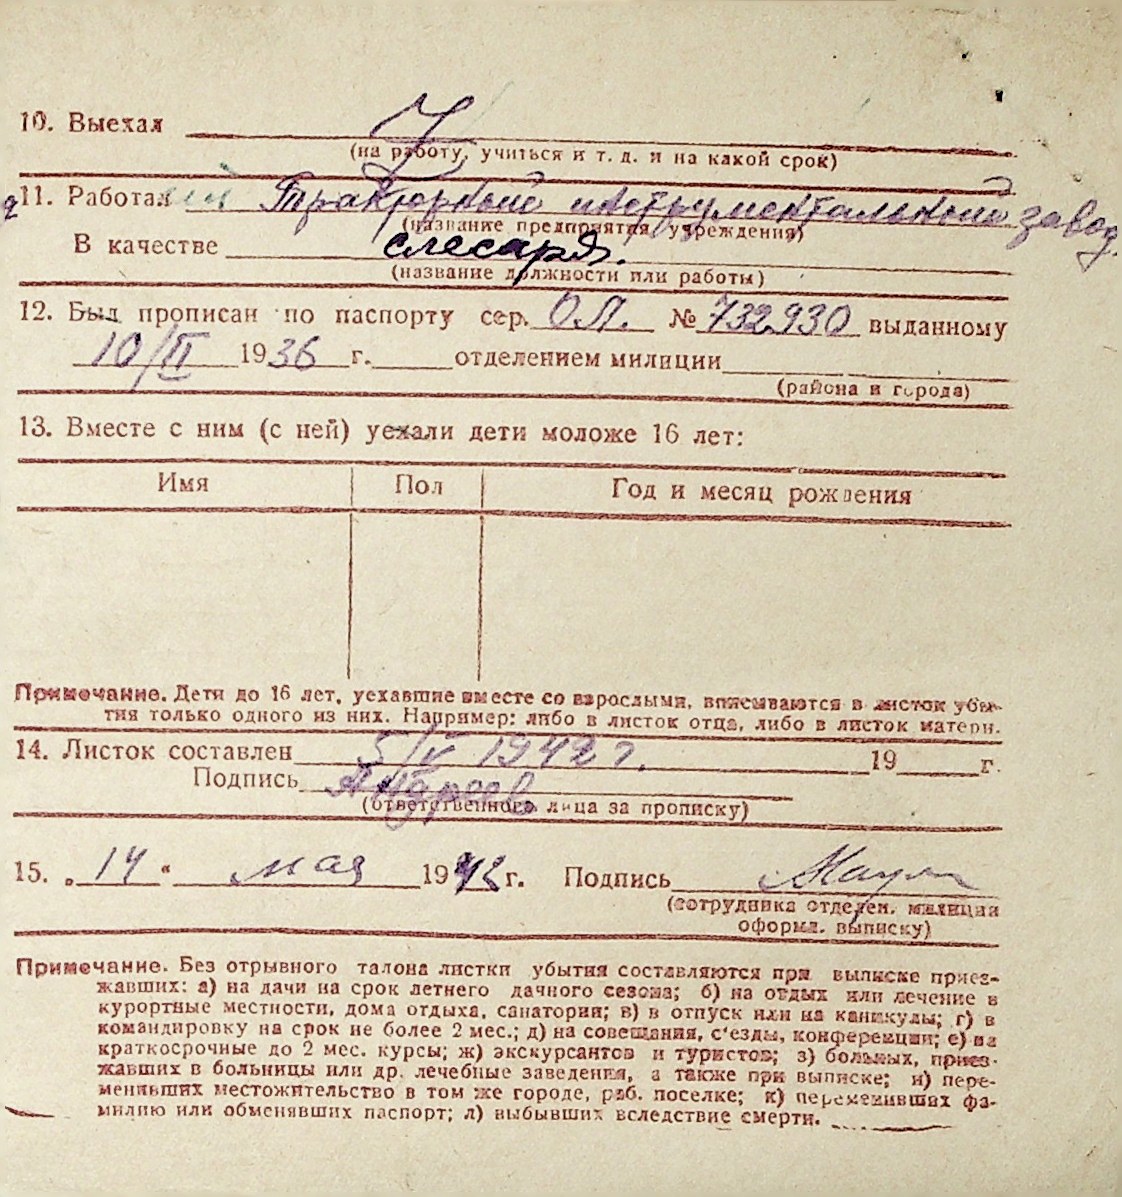 10. Выехал
(на работу, учиться и т. д. и на какой срок)
11. Работал Тракторный инструментальный завод.
(название предприятия, учреждения)
В качестве слесаря.
(название должности или работы)
12. Был прописан по паспорту сер. ОЛ. № 732930 выданному
10/II 1936 г. отделением милиции
(района и города)
13. Вместе с ним (с ней) уехали дети моложе 16 лет:
Имя Пол Год и месяц рождения
Примечание. Дети до 16 лет, уехавшие вместе со взрослыми, вписываются в листок убы-
тия только одного из них. Например: либо в листок отца, либо в листок матери.
14. Листок составлен 5/V 1942 г. 19 г.
Подпись Андреев
(ответственного лица за прописку)
15. „14“ мая 1942 г. Подпись
(сотрудника отделен. милиции
оформл. выписку)
Примечание. Без отрывного талона листки убытия составляются при выписке приез-
жавших: а) на дачи на срок летнего дачного сезона; б) на отдых или лечение в
курортные местности, дома отдыха, санатории; в) в отпуск или на каникулы; г) в
командировку на срок не более 2 мес.; д) на совещания, с'езды, конференции; е) на
краткосрочные до 2 мес. курсы; ж) экскурсантов и туристов; з) больных, приез-
жавших в больницы или др. лечебные заведения, а также при выписке; и) пере-
менивших местожительство в том же городе, раб. поселке; к) переменивших фа-
милию или обменявших паспорт; л) выбывших вследствие смерти.